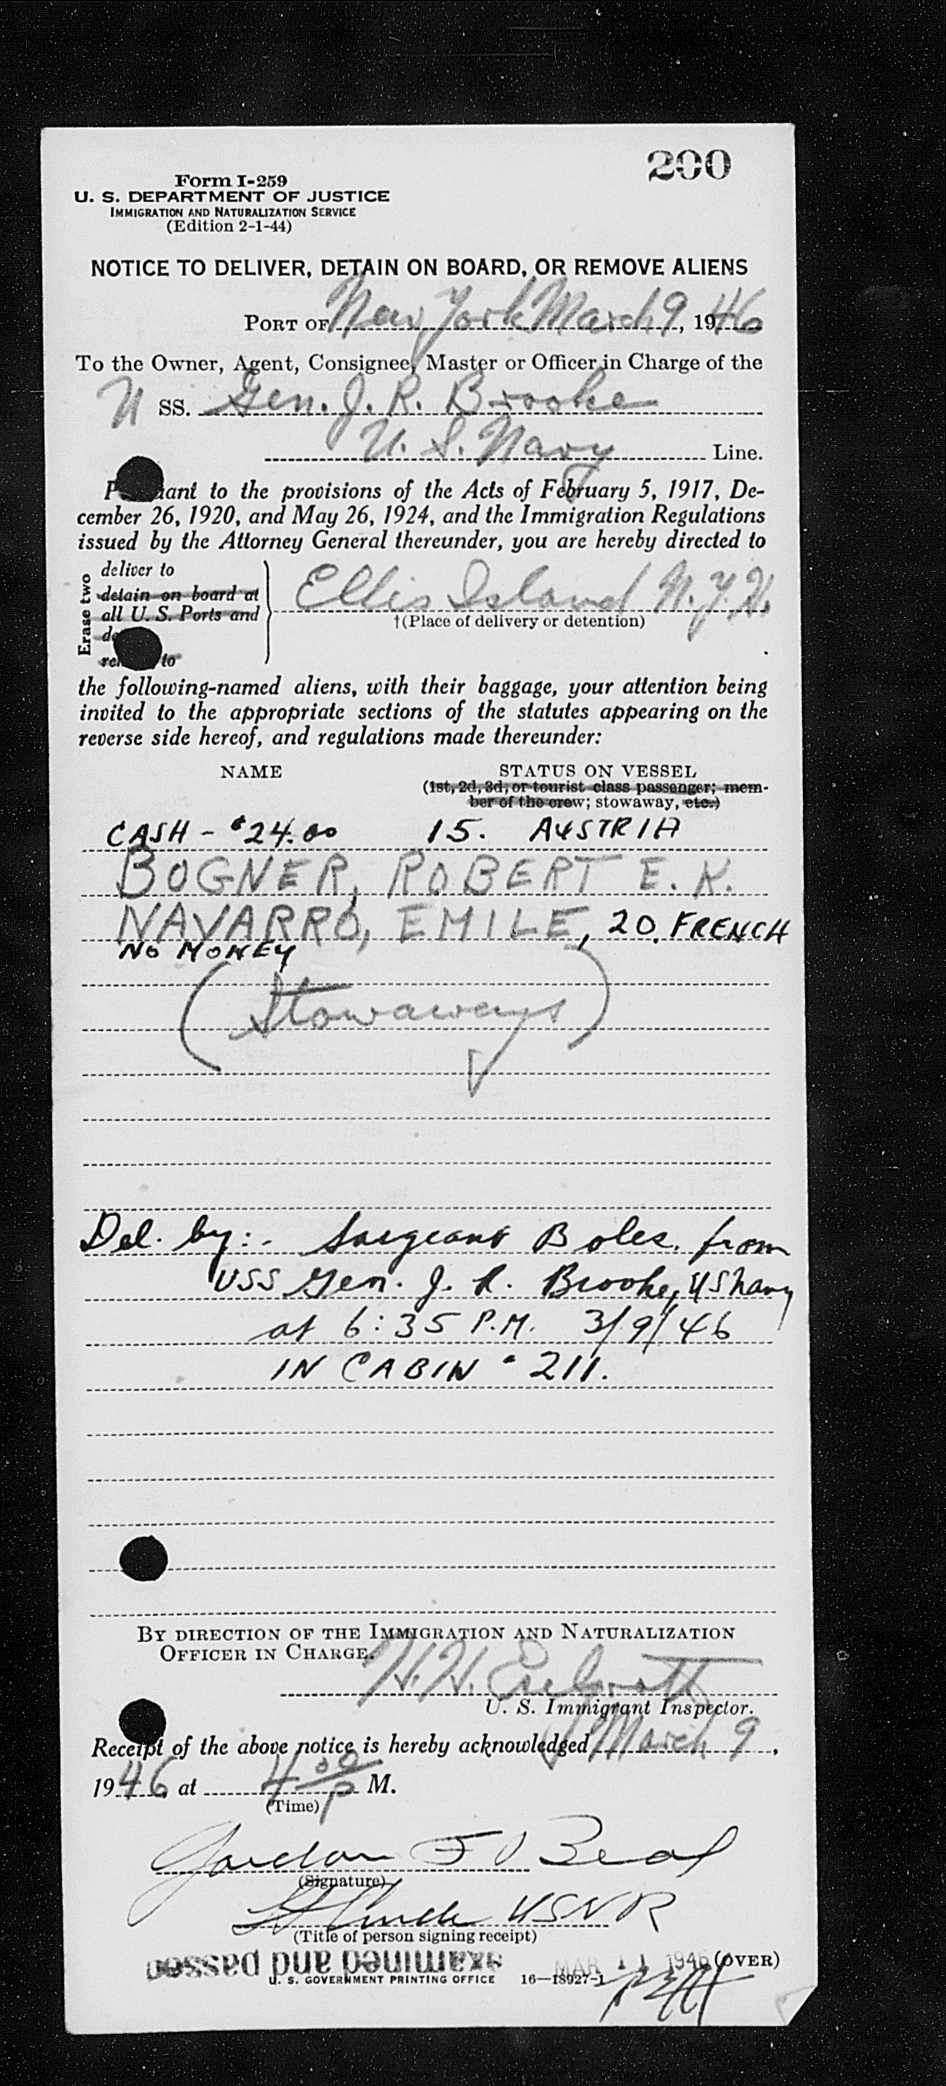 200
Form I-259
U. S. DEPARTMENT OF JUSTICE
IMMIGRATION AND NATURALIZATION SERVICE
(Edition 2-1-44)
NOTICE TO DELIVER, DETAIN ON BOARD, OR REMOVE ALIENS
PORT OF New York March 9, 1946
To the Owner, Agent, Consignee, Master or Officer in Charge of the
U SS. Gen. J. R. Brooke
U. S. Navy Line.
to the provisions of the Acts of February 5, 1917, De-
cember 26, 1920, and May 26, 1924, and the Immigration Regulations
issued by the Attorney General thereunder, you are hereby directed to
Erase two
deliver to
detain on board at
all U. S. Ports and
to
Ellis Island N.Y.H.
†(Place of delivery or detention)
the following-named aliens, with their baggage, your attention being
invited to the appropriate sections of the statutes appearing on the
reverse side hereof, and regulations made thereunder:
NAME STATUS ON VESSEL
(1st, 2d, 3d, or tourist class passenger; mem-
ber of the crew; stowaway, etc.)
CASH - $24.00 15. AUSTRIA
BOGNER, ROBERT E. K.
NAVARRO, EMILE, 20. FRENCH
NO MONEY
(Stowaways)
Del. by:- Sargeant Boles, from
USS Gen. J. R. Brooke, US Navy
at 6:35 P.M. 3/9/46
IN CABIN # 211.
BY DIRECTION OF THE IMMIGRATION AND NATURALIZATION
OFFICER IN CHARGE.
H. H.
U. S. Immigrant Inspector.
Receipt of the above notice is hereby acknowledged March 9,
1946 at 4 00 P M.
(Time)
Gordon F Beal
(Signature)
USNR
(Title of person signing receipt)
examined and passed
MAR 11 1946 (OVER)
U. S. GOVERNMENT PRINTING OFFICE 16—18927-1